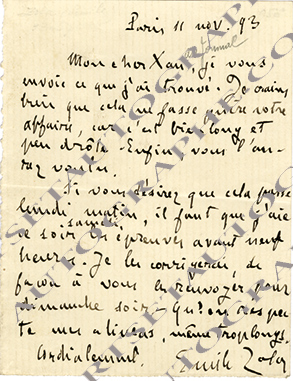 Paris 11 nov. 93
Mon cher Xau, je vous
envoie ce que j'ai trouvé. Je crains
bien que cela ne fasse guère votre
affaire, car c'est bien long et
peu drôle. Enfin, vous l'au-
rez voulu.
Si vous désirez que cela passe
lundi matin, il faut que j'aie
ce soir, samedi, les épreuves avant neuf
heures. Je les corrigerai, de
façon à vous les renvoyer pour
dimanche soir. Qu'on respec-
te mes alinéas, même trop longs.
Cordialement
Emile Zola